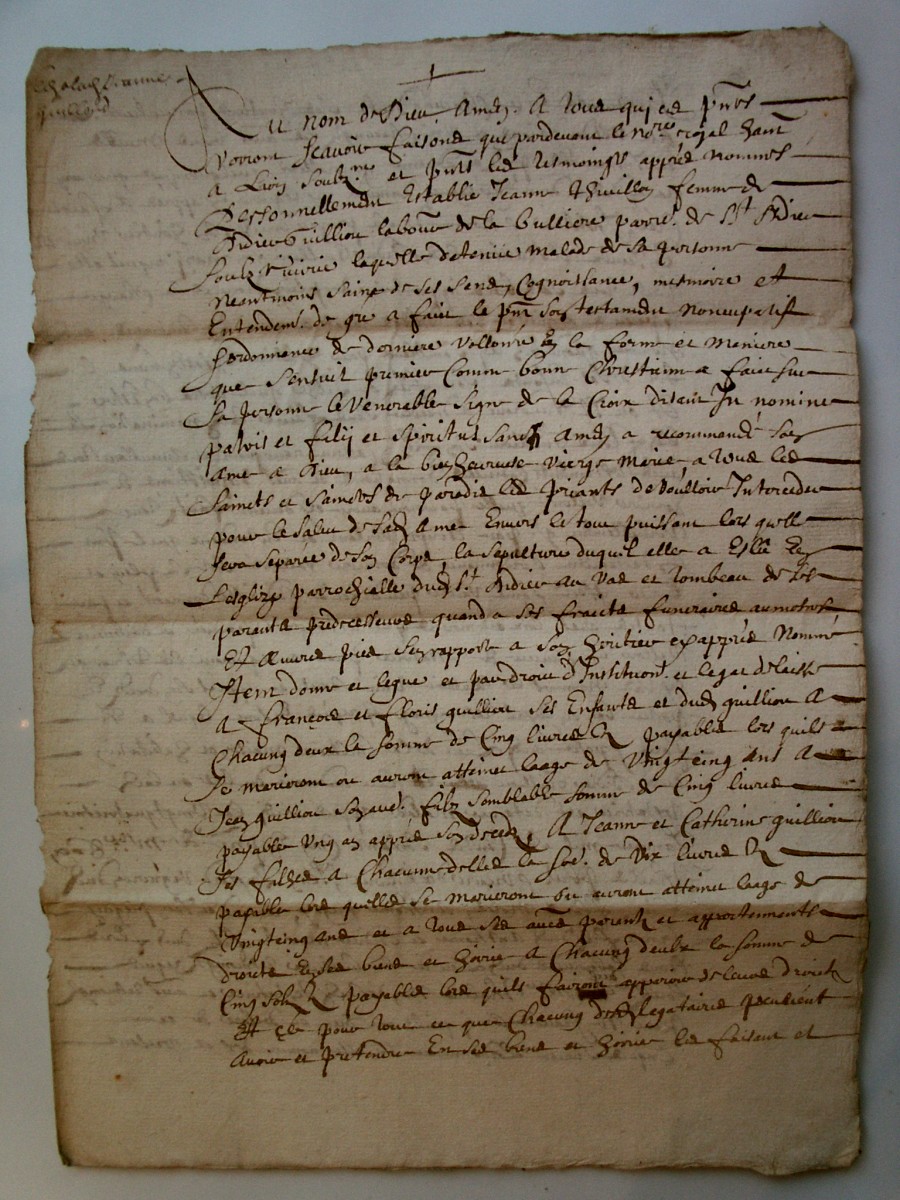 Au nom de Dieu Amen. A tous qui ces pntes
verront scavoir faisons que pardevant le nore royal hant
a Lion soubzne et pnts les tesmoings apprès nommes
Personnellement establie Jeanne femme de
Andieu Guilliou labour de la Bulliere parre. de St Andieu
laquelle detenue malade de sa personne
neantmoins saine de ses sens, cognoissance, memoire et
entendemt. de gre a faict le pnt son testament noncupatif
et ordonnance de derniere vollonte en la forme et maniere
que sensuit premier comme bonne chrestienne a faict sur
sa personne le venerable signe de la Croix disant In nomine
patris et filij et spiritus sancti amen a recommandé son
ame a Dieu, a la bienheureuse vierge Marie, a tous les
saincts et sainctes de paradis les priants de voulloir interceder
pour le salut de sad. ame envers le tout puissant lors quelle
sera separee de son corps, la sepulture duquel elle a eslu en
lesglize parrochialle dud. St. Andieu au vas et tombeau de ses
parents predecesseurs quand a ses fraicts funeraires aumosnes
et œuvres pies sen rapporte a son heritier cy apprès nommé
Item donne et legue et par droit d'Institution. et legat delaisse
a François et Floris Guilliou ses enfants et dud. Guilliou a
chacung deux la somme de cinq livres payable lors quils
se marieront ou auront atteinct laage de vingtcinq ans a
Jean Guilliou son aud. filz semblable somme de cinq livres
payable ung an apprès son deceds, A Jeanne et Catherine Guilliou
ses filhes a chacune delles la soe. de dix livres
payable lors quelles se marieront ou auront atteinct laage de
vingtcinq ans et a tous ses autres parents et
droicts en ses biens et hoirie a chacung deulx la somme de
cinq solz payable lors quils fairont apparoir de leurs droicts
Et ce pour tout ce que chacung desd. legataires
avoir et pretendre en ses biens et hoirie les faisant et